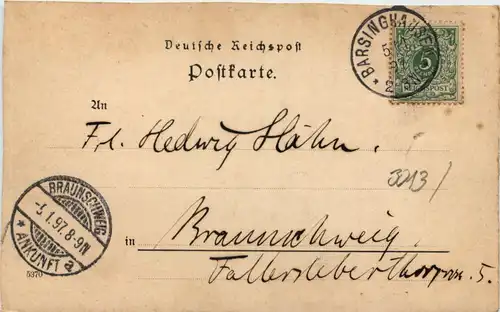 Deutsche Reichspost
Postkarte.
BARSINGHAUSEN
5
REICHSPOST
An
Frl. Hedwig Hähn.
3213/
BRAUNSCHWEIG
-5.1.97.8-9N
* ANKUNFT a
in Braunschweig.
Fallersleberthorprom. 5.
5370